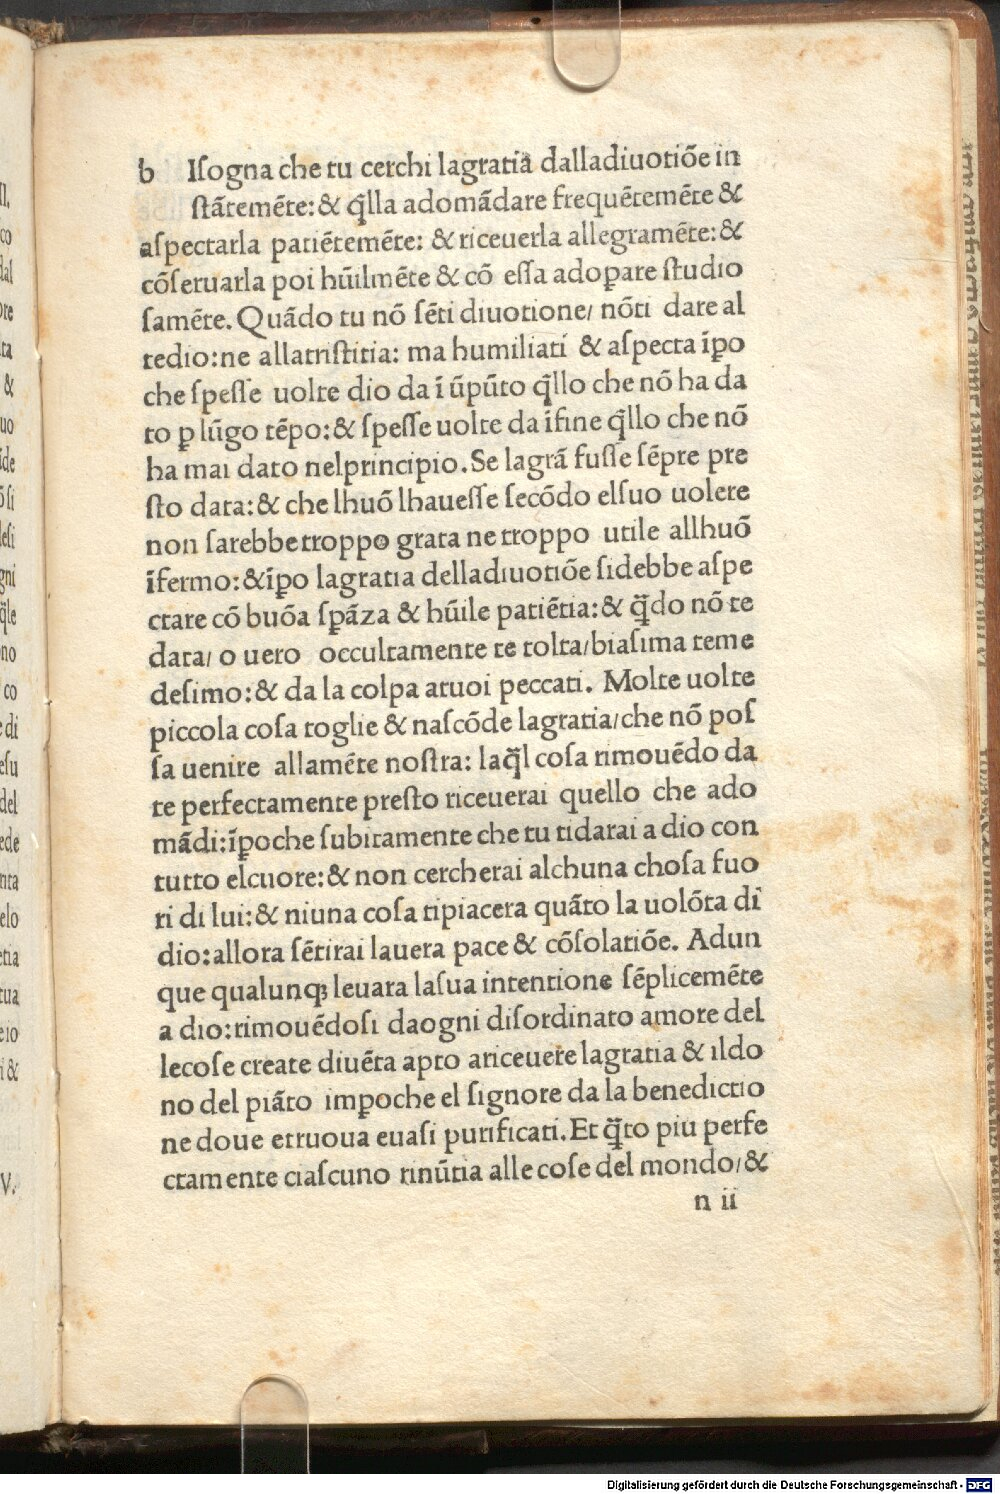 b Iſogna che tu cerchi lagratiā dalladiuotiōe in
ſtātemēte: & q̄lla adomādare frequētemēte &
aſpectarla patiētemēte: & riceuerla allegramēte: &
cōſeruarla poi hūilmēte & cō eſſa adoꝑare ſtudio
ſamēte. Quādo tu nō ſēti diuotione/ nōti dare al
tedio:ne allatriſtitia: ma humiliati & aſpecta īꝑo
che ſpeſſe uolte dio da ī ūpūto q̄llo che nō ha da
to ꝑ lūgo tēpo: & ſpeſſe uolte da īfine q̄llo che nō
ha mai dato nelprincipio. Se lagrā fuſſe ſēpre pre
ſto data: & che lhuō lhaueſſe ſecōdo elſuo uolere
non ſarebbe troppo grata ne troppo utile allhuō
īfermo: &īꝑo lagratia delladiuotiōe ſidebbe aſpe
ctare cō buōa ſꝑāza & hūile patiētia: & q̄do nō te
data/ o uero occultamente te tolta/biaſima teme
deſimo: & da la colpa atuoi peccati. Molte uolte
piccola coſa toglie & naſcōde lagratia/che nō poſ
ſa uenire allamēte noſtra: laq̄l coſa rimouēdo da
te perfectamente preſto riceuerai quello che ado
mādi: īꝑoche ſubitamente che tu tidarai a dio con
tutto elcuore: & non cercherai alchuna choſa fuo
ri di lui: & niuna coſa tipiacera quāto la uolōta di
dio: allora ſētirai lauera pace & cōſolatiōe. Adun
que qualunqꝫ leuara laſua intentione ſēplicemēte
a dio: rimouēdoſi daogni diſordinato amore del
lecoſe create diuēta apto ariceuere lagratia & ildo
no del piāto imꝑoche el ſignore da la benedictio
ne doue etruoua euaſi purificati. Et q̄to piu perfe
ctamente ciaſcuno rinūtia alle coſe del mondo/ &
n ii
Digitalisierung gefördert durch die Deutsche Forschungsgemeinschaft - DFG